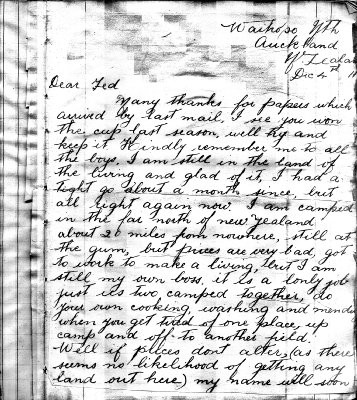 Waihopo Nth
Auckland
N Zealand
Dec 4th
Dear Ted
Many thanks for papers which
arrived by last mail. I see you won
the cup last season, well try and
keep it. Kindly remember me to all
the boys. I am still in the land of
the living and glad of it, I had a
tight go about a month since, but
all right again now. I am camped
in the far north of new Zealand
about 20 miles from nowhere, still at
the gum, but prices are very bad, got
to work to make a living, but I am
still my own boss. it is a lonly job
just its two camped together, do
your own cooking, washing and mend
when you get tired of one place, up
camp and off to another field.
Well if prices dont alter, (as there
seems no likelihood of getting any
land out here) my name will soon